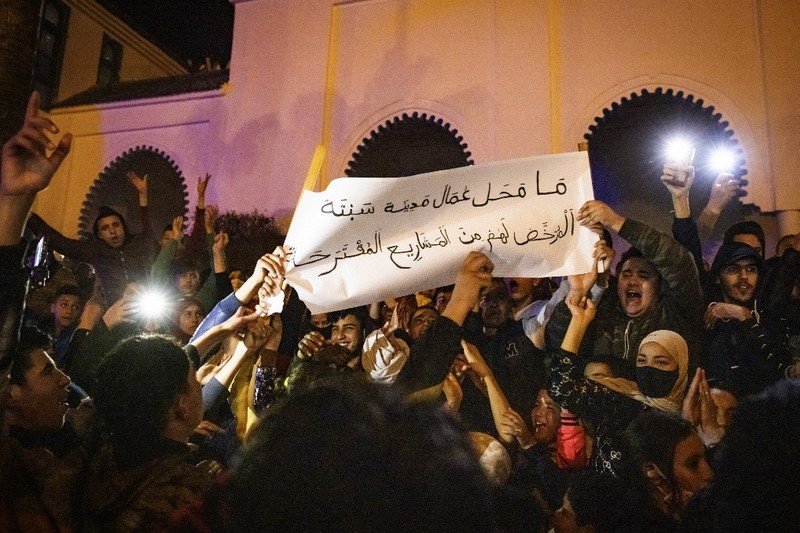 مَا مَحَل عُمَال مَدِينَة سَبتَة
المُرَخَّص لَهُم مِن المَشَارِيع المُقْتَرَحَة